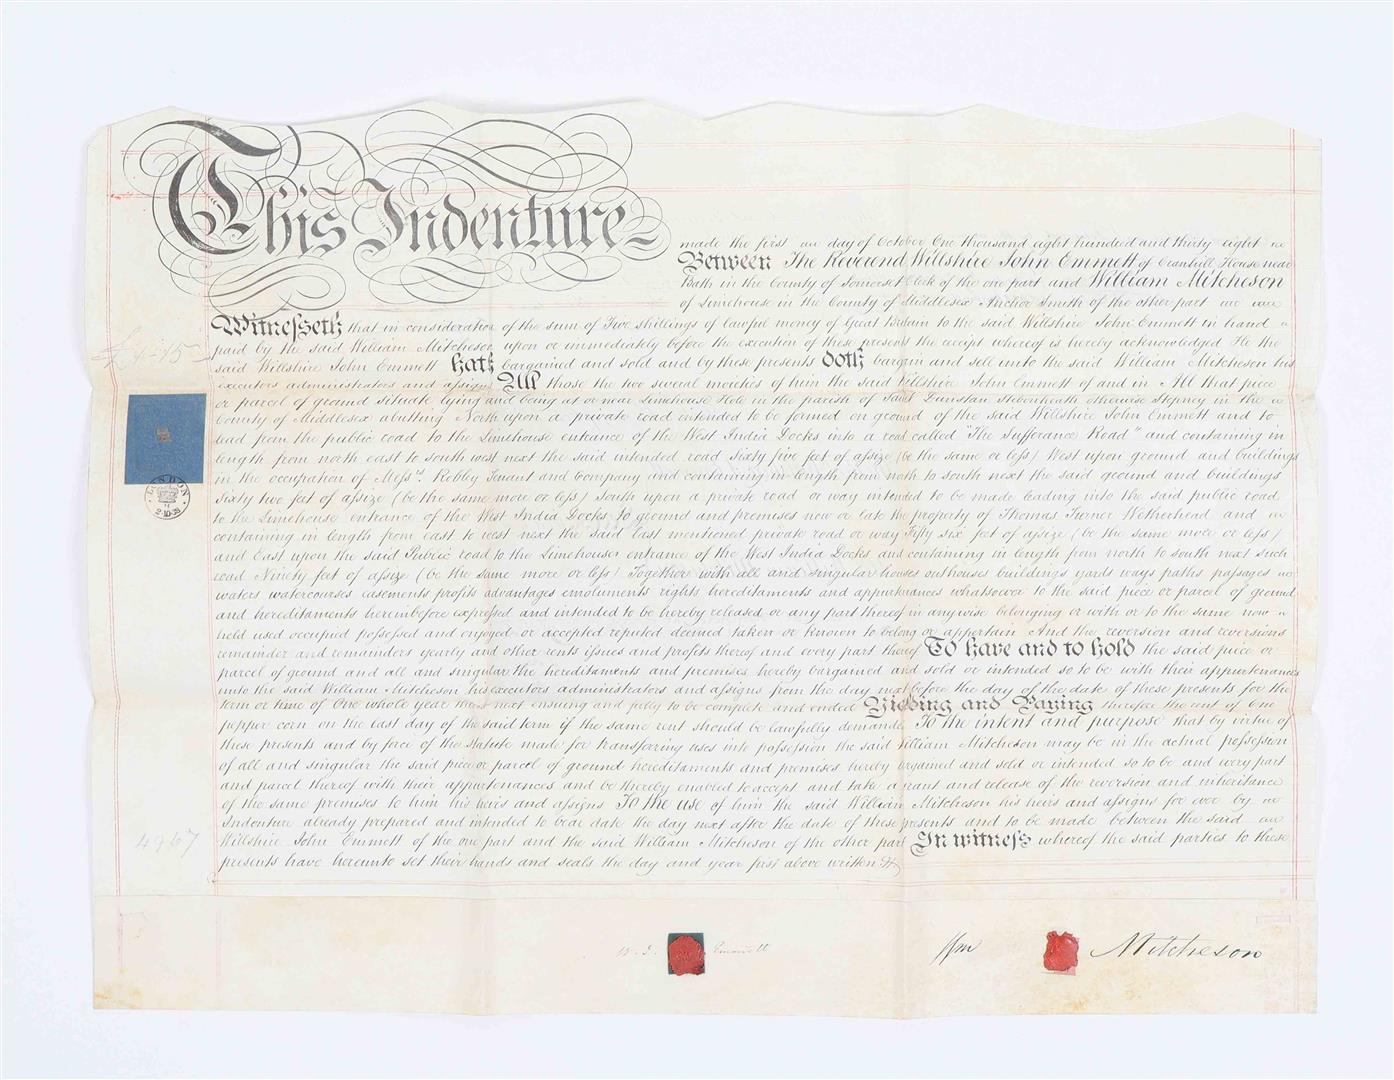 This Indenture
made the first day of October One thousand eight hundred and thirty eight
Between The Reverend Willshire John Emmett of Cranhill House near
Bath in the County of Somerset Clerk of the one part and William Mitcheson
of Limehouse in the County of Middlesex Anchor Smith of the other part
Witnesseth that in consideration of the sum of Five shillings of lawful money of Great Britain to the said Willshire John Emmett in hand
paid by the said William Mitcheson upon or immediately before the execution of these presents the receipt whereof is hereby acknowledged He the
said Willshire John Emmett hath bargained and sold and by these presents doth bargain and sell unto the said William Mitcheson his
executors administrators and assigns All those the two several moieties of him the said Willshire John Emmett of and in All that piece
or parcel of ground situate lying and being at or near Limehouse Hole in the parish of Saint Dunstan Stebonheath otherwise Stepney in the
County of Middlesex abutting North upon a private road intended to be formed on ground of the said Willshire John Emmett and to
lead from the public road to the Limehouse entrance of the West India Docks into a road called "The Sufferance Road" and containing in
length from north east to south west next the said intended road Sixty five feet of assize (be the same or less) West upon ground and buildings
in the occupation of Messrs. Robby Tenant and Company and containing in length from north to south next the said ground and buildings
Sixty two feet of assize (be the same more or less) South upon a private road or way intended to be made leading into the said public road
to the Limehouse entrance of the West India Docks to ground and premises now or late the property of Thomas Turner Wetherhead and
containing in length from east to west next the said last mentioned private road or way Fifty six feet of assize (be the same more or less)
and East upon the said Public road to the Limehouse entrance of the West India Docks and containing in length from north to south next such
road Ninety feet of assize (be the same more or less) Together with all and singular houses outhouses buildings yards ways paths passages
waters watercourses easements profits advantages emoluments rights hereditaments and appurtenances whatsoever to the said piece or parcel of ground
and hereditaments hereinbefore expressed and intended to be hereby released or any part thereof in anywise belonging or with or to the same now
held used occupied possessed and enjoyed or accepted reputed deemed taken or known to belong or appertain And the reversion and reversions
remainder and remainders yearly and other rents issues and profits thereof and every part thereof To have and to hold the said piece or
parcel of ground and all and singular the hereditaments and premises hereby bargained and sold or intended so to be with their appurtenances
unto the said William Mitcheson his executors administrators and assigns from the day next before the day of the date of these presents for the
term or time of One whole year thence next ensuing and fully to be complete and ended Yielding and Paying therefore the rent of One
pepper corn on the last day of the said term if the same rent should be lawfully demanded To the intent and purpose that by virtue of
these presents and by force of the statute made for transferring uses into possession the said William Mitcheson may be in the actual possession
of all and singular the said piece or parcel of ground hereditaments and premises hereby bargained and sold or intended so to be and every part
and parcel thereof with their appurtenances and be thereby enabled to accept and take a grant and release of the reversion and inheritance
of the same premises to him his heirs and assigns To the use of him the said William Mitcheson his heirs and assigns for ever by
Indenture already prepared and intended to bear date the day next after the date of these presents and to be made between the said
Willshire John Emmett of the one part and the said William Mitcheson of the other part In witness whereof the said parties to these
presents have hereunto set their hands and seals the day and year first above written
LONDON
4967
W. J. Emmett
Wm Mitcheson